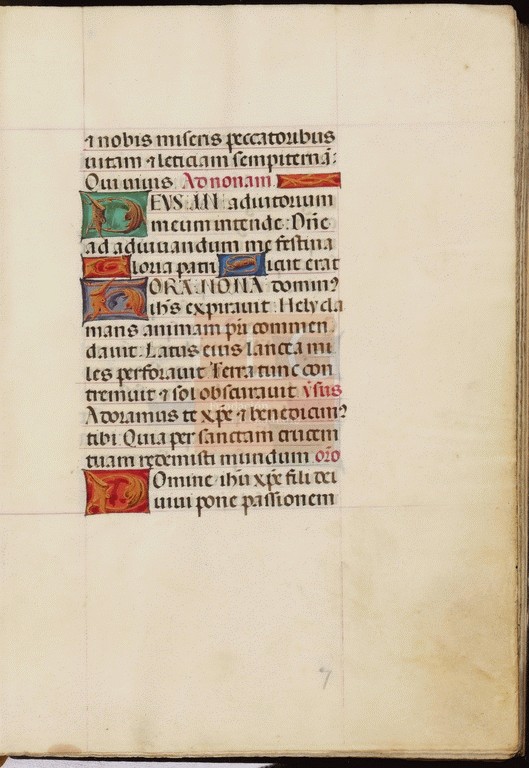 ⁊ nobis miseris peccatoribus
uitam ⁊ leticiam sempiternā:
Qui uiuis Ad nonam
DEVS IN adiutorium
meum intende: Dn̄e
ad adiuuandum me festina
Gloria patri Sicut erat
HORA NONA dominꝰ
ihs̄ expirauit: Hely cla
mans animam pr̄i commen
dauit: Latus eius lancea mi
les perforauit Terra tunc con
tremuit ⁊ sol obscurauit v̄sus
Adoramus te xp̄e ⁊ benedicimꝰ
tibi Quia per sanctam crucem
tuam redemisti mundum or̄o
Domine ihū xp̄e fili dei
uiui pone passionem
7